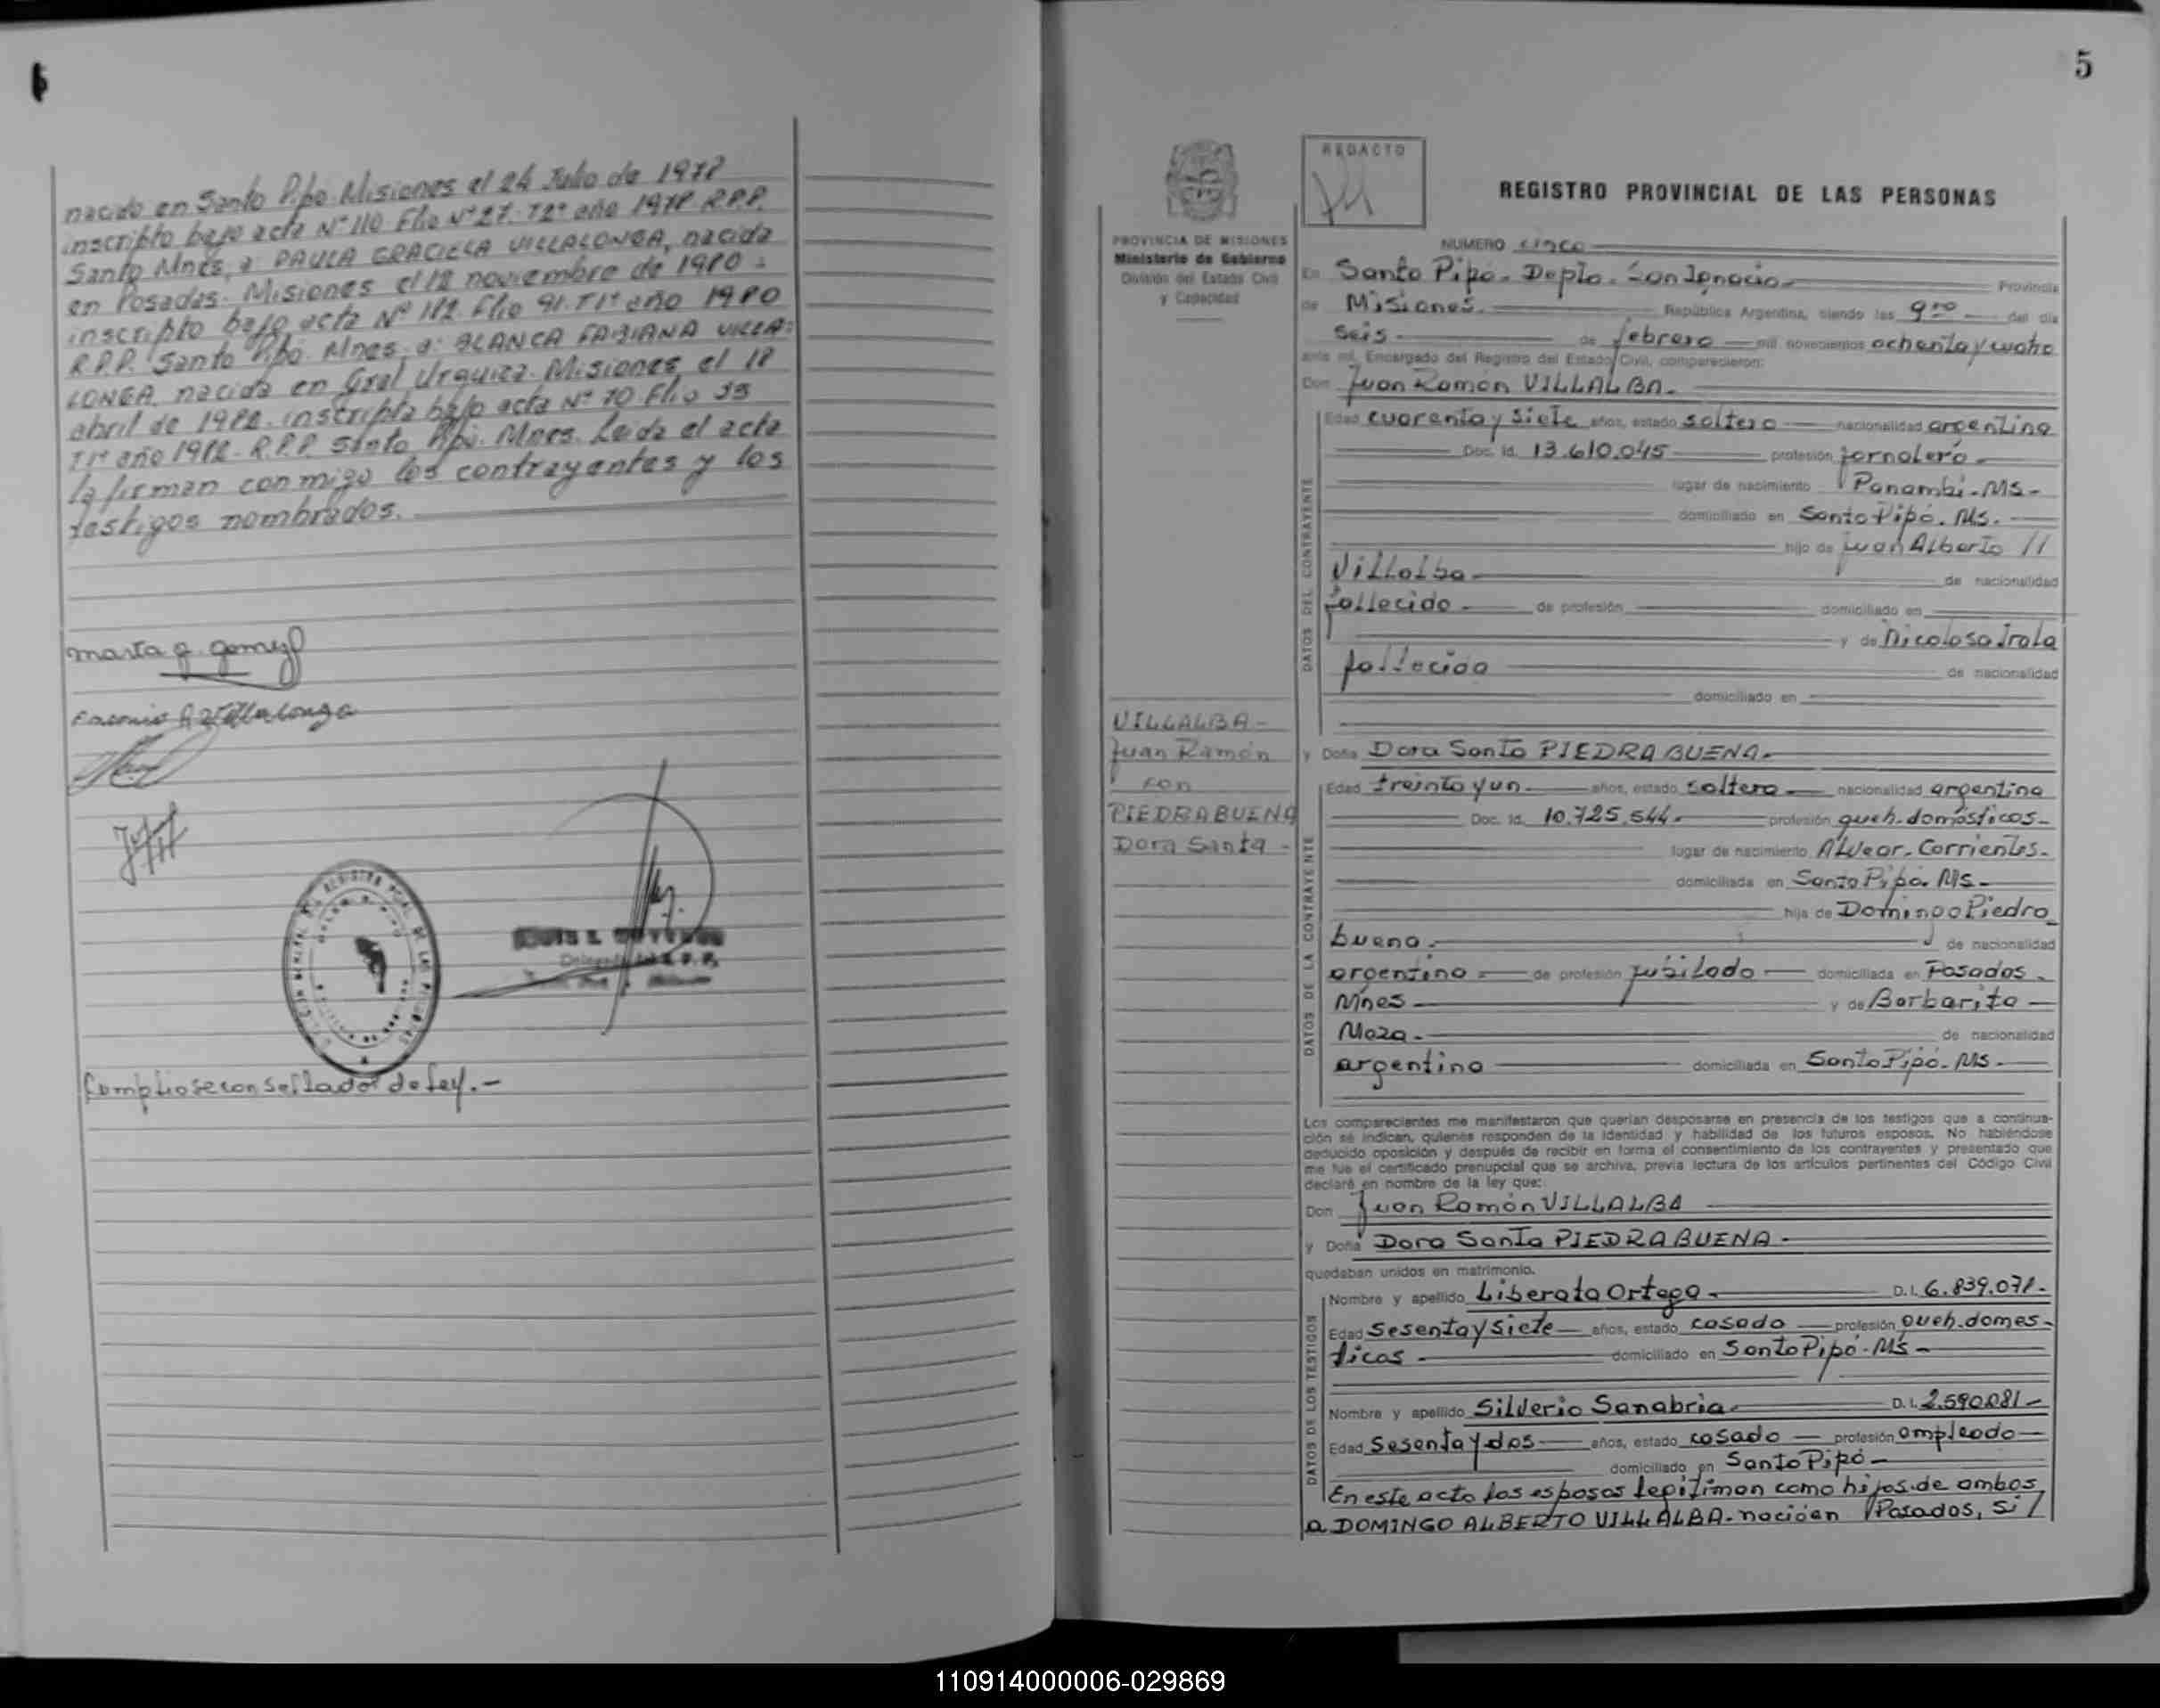 nacido en Santo Pipó. Misiones el 24 Julio de 1978
inscripto bajo acta Nº 110 Flio Nº 27. Tº 2º año 1978 R.P.P.
Santo Mnes, a: PAULA GRACIELA VILLALONGA, nacida
en Posadas. Misiones el 12 noviembre de 1980 =
inscripto bajo acta Nº 112 Flio 91. T1º año 1980
R.P.P. Santo Pipó. Mnes, a: BLANCA FABIANA VILLA=
LONGA, nacida en Gral Urquiza. Misiones el 18
abril de 1982. inscripta bajo acta Nº 70 Flio 35
T1º año 1982. R.P.P. Santo Pipó. Mnes. Leída el acta
la firman conmigo los contrayentes y los
testigos nombrados.
Marta g. gomez
Villalonga
Complioseconsellador de Ley.-
5
REDACTO
REGISTRO PROVINCIAL DE LAS PERSONAS
PROVINCIA DE MISIONES
Ministerio de Gobierno
División del Estado Civil
y Capacidad
NUMERO cinco
En Santo Pipó. Depto. San Ignacio Provincia
de Misiones. República Argentina, siendo las 9 00 del día
seis de febrero mil novecientos ochenta y cuatro
ante mí, Encargado del Registro del Estado Civil, comparecieron:
Don Juan Ramón VILLALBA.
DATOS DEL CONTRAYENTE
Edad cuarenta y siete años, estado soltero nacionalidad argentina
Doc. Id. 13.610.045 profesión jornalero
lugar de nacimiento Panambí-MS-
domiciliado en Santo Pipó. Ms.
hijo de Juan Alberto //
Villalba de nacionalidad
fallecido. de profesión domiciliado en
y de Nicolasa Irala
fallecida de nacionalidad
domiciliado en
VILLALBA-
Juan Ramón
con
PIEDRABUENA
Dora Santa -
y Doña Dora Santa PIEDRABUENA.
DATOS DE LA CONTRAYENTE
Edad treinta y un años, estado soltera nacionalidad argentina
Doc. Id. 10.725.544. profesión queh. domésticos-
lugar de nacimiento Alvear. Corrientes.
domiciliada en Santo Pipó. Ms-
hija de Domingo Piedra
buena. de nacionalidad
argentino - de profesión jubilado domiciliada en Posadas.
Mnes y de Barbarita
Meza. de nacionalidad
argentina domiciliada en Santo Pipó. Ms.
Los comparecientes me manifestaron que querían desposarse en presencia de los testigos que a continua-
ción se indican, quienes responden de la identidad y habilidad de los futuros esposos. No habiéndose
deducido oposición y después de recibir en forma el consentimiento de los contrayentes y presentado que
me fue el certificado prenupcial que se archiva, previa lectura de los artículos pertinentes del Código Civil
declaré en nombre de la ley que:
Don Juan Ramón VILLALBA
y Doña Dora Santa PIEDRABUENA.
quedaban unidos en matrimonio.
DATOS DE LOS TESTIGOS
Nombre y apellido Liberata Ortega. D.I. 6.839.071.
Edad Sesenta y siete años, estado casada profesión queh. domes-
ticos. domiciliado en Santo Pipó. Ms
Nombre y apellido Silverio Sanabria D.I. 2.590.081
Edad Sesenta y dos años, estado casado profesión empleado
domiciliado en Santo Pipó
En este acto los esposos legitiman como hijos de ambos
a DOMINGO ALBERTO VILLALBA. nació en Posadas, si /
110914000006-029869